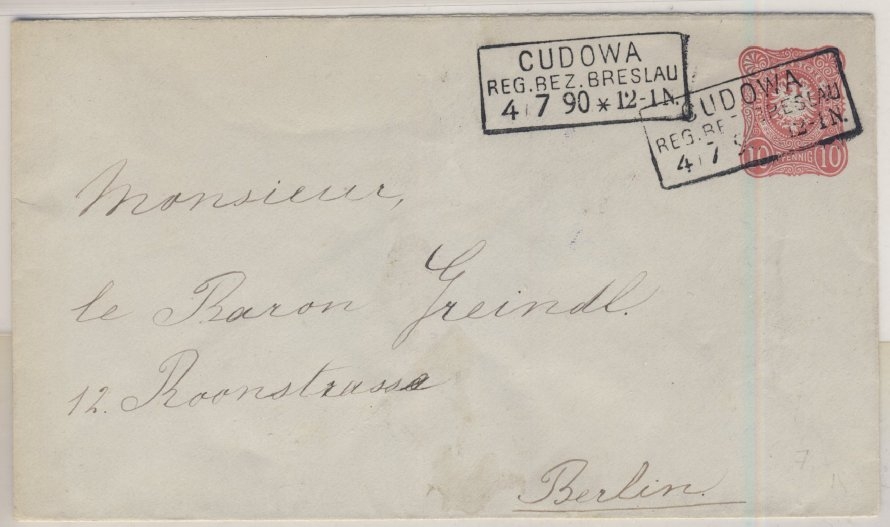 CUDOWA
REG. BEZ. BRESLAU
4 7 90 * 12-1 N.
CUDOWA
REG. BEZ. BRESLAU
4 7 9 12-1 N.
10 PFENNIG 10
Monsieur,
le Baron Greindl.
12. Roonstrasse
Berlin.